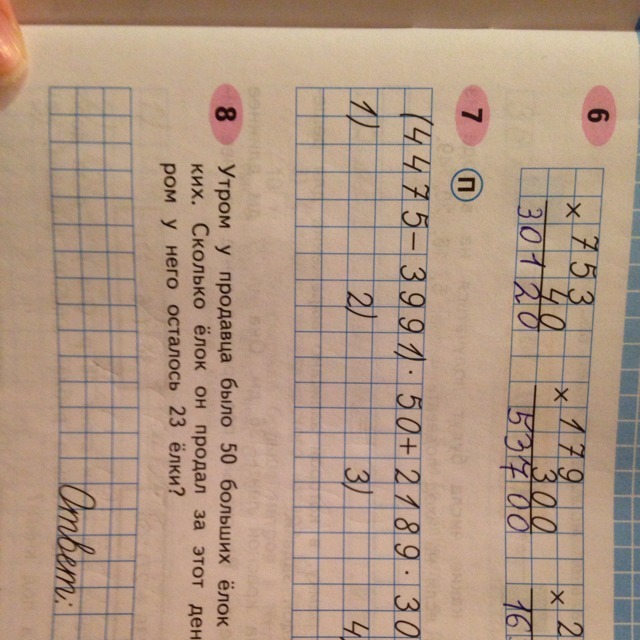 6
× 753 × 179 × 2
40 300
30120 53700 16
7 П
(4475-3991)·50+2189·30
1) 2) 3) 4
8 Утром у продавца было 50 больших ёлок
ких. Сколько ёлок он продал за этот ден
ром у него осталось 23 ёлки?
Ответ: